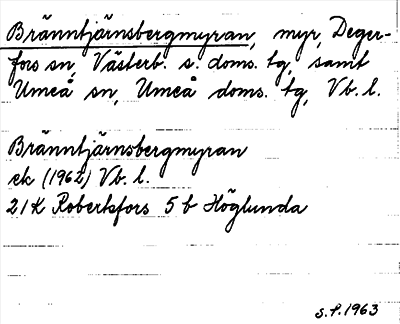 Bränntjärnsbergmyran, myr, Deger-
fors sn, Västerb. s. doms. tg, samt
Umeå sn, Umeå doms. tg, Vb. l.
Bränntjärnsbergmyran
ek (1962) Vb. l.
21K Robertsfors 5 b Höglunda
S.F. 1963